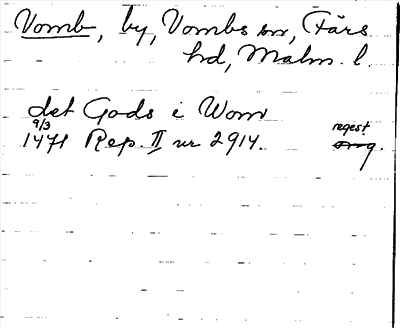 Vomb, by, Vombs sn, Färs
hd, Malm. l.
det Gods i Wom
9/3
1471 Rep. II nr 2914.
regest
orig.